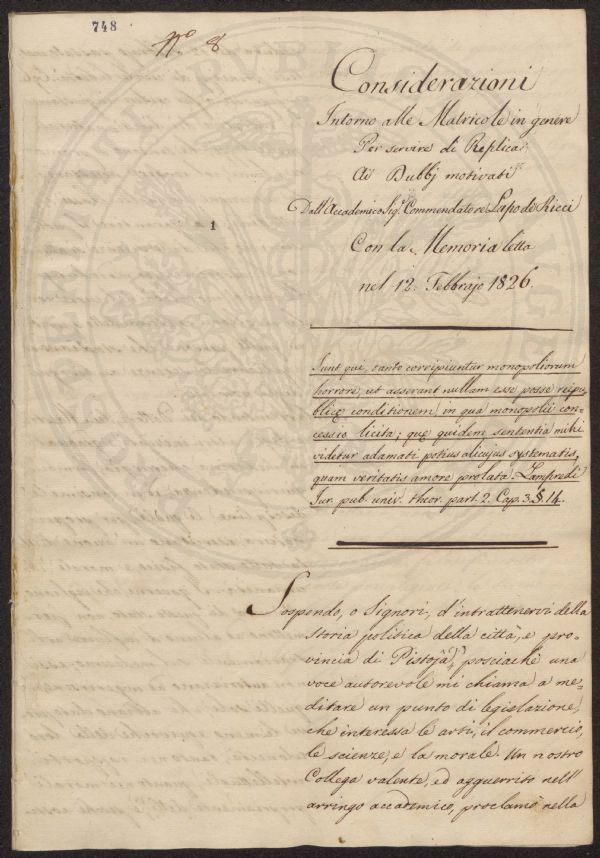 748
N.º 8
Considerazioni
Intorno alle Matricole in genere
Per servire di Replica
Ai Dubbj motivati
Dall'Accademico Sig.e Commendatore Lapo de Ricci
Con la Memoria letta
nel 12. Febbrajo 1826.
1
Sunt qui, tanto corripiuntur monopoliorum
horrore, ut asserant nullam esse posse reipu=
blicę conditionem, in qua monopolii con=
cessio licita; quę quidem sententia mihi
videtur adamati potius alicujus systematis,
quam veritatis amore prolata. Lampredi
Jur. pub. univ. theor. part. 2. Cap. 3. §. 14.
Sospendo, o Signori, d'intrattenervi della
storia politica della città, e pro=
vincia di Pistoja, posciachè una
voce autorevole mi chiama a me=
ditare un punto di legislazione,
che interessa le arti, il commercio,
le scienze, e la morale. Un nostro
Collega valente, ed agguerrito nell'
arringo accademico, proclamò nella